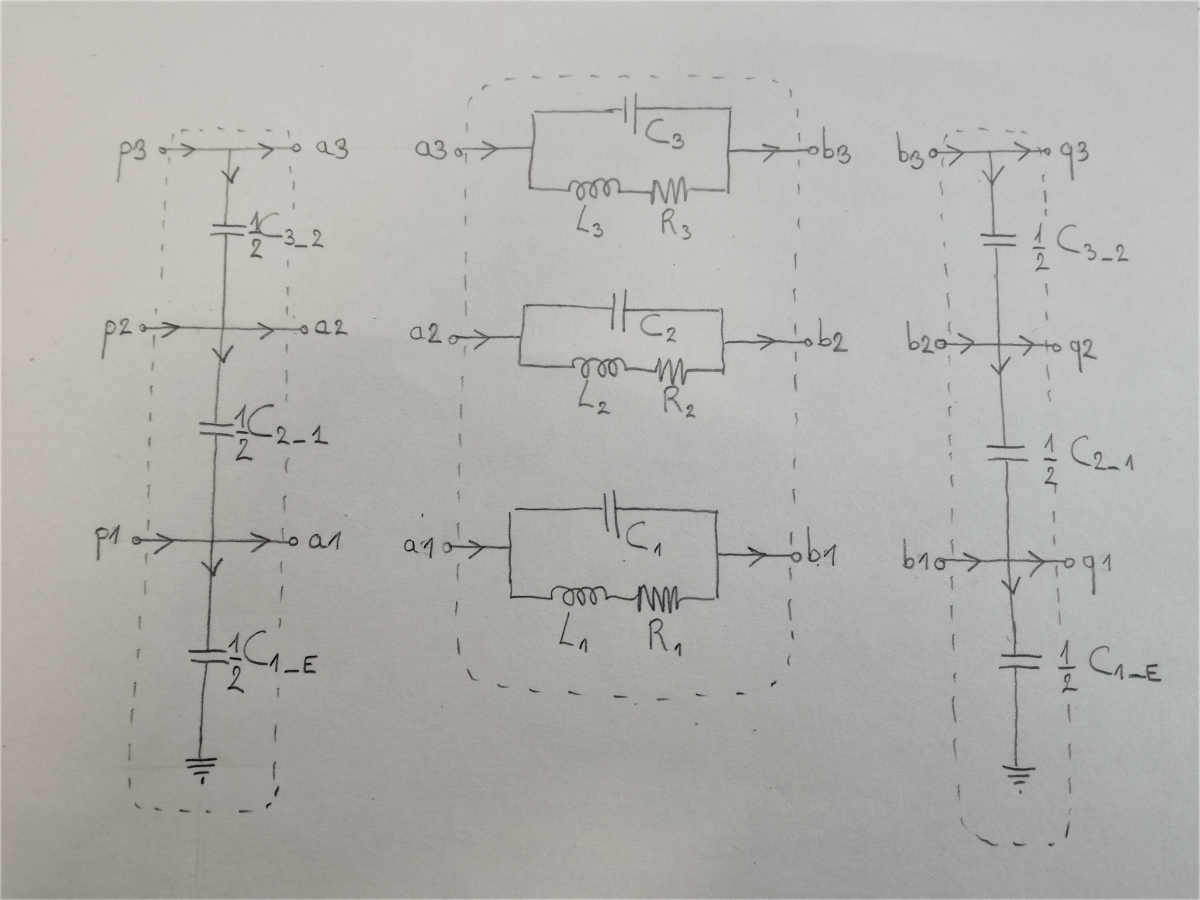 p3
a3
½C3_2
p2
a2
½C2_1
p1
a1
½C1_E
a3
C3
b3
L3
R3
a2
C2
b2
L2
R2
a1
C1
b1
L1
R1
b3
q3
½ C3_2
b2
q2
½ C2_1
b1
q1
½ C1_E